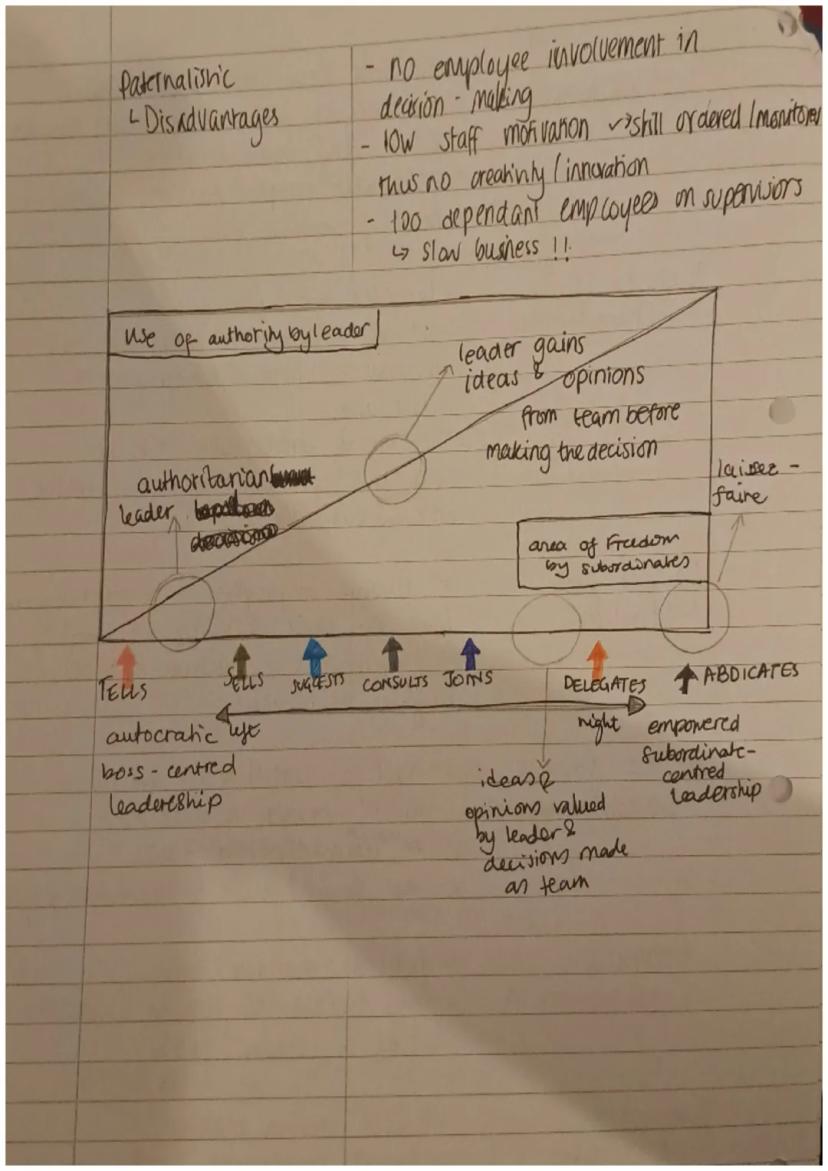 Paternalistic
↳ Disadvantages
- no employee involvement in
decision - making
- low staff motivation ↪ still ordered / monitored
thus no creativity / innovation
- too dependant employees on supervisors
↳ slow business !!
use of authority by leader
leader gains
ideas & opinions
from team before
making the decision
authoritarian
leader
laissez -
faire
area of Freedom
by subordinates
TELLS SELLS SUGGESTS CONSULTS JOINS DELEGATES ABDICATES
left right
autocratic
boss - centred
leadership
empowered
subordinate-
centred
leadership
ideas &
opinions valued
by leader &
decisions made
as team